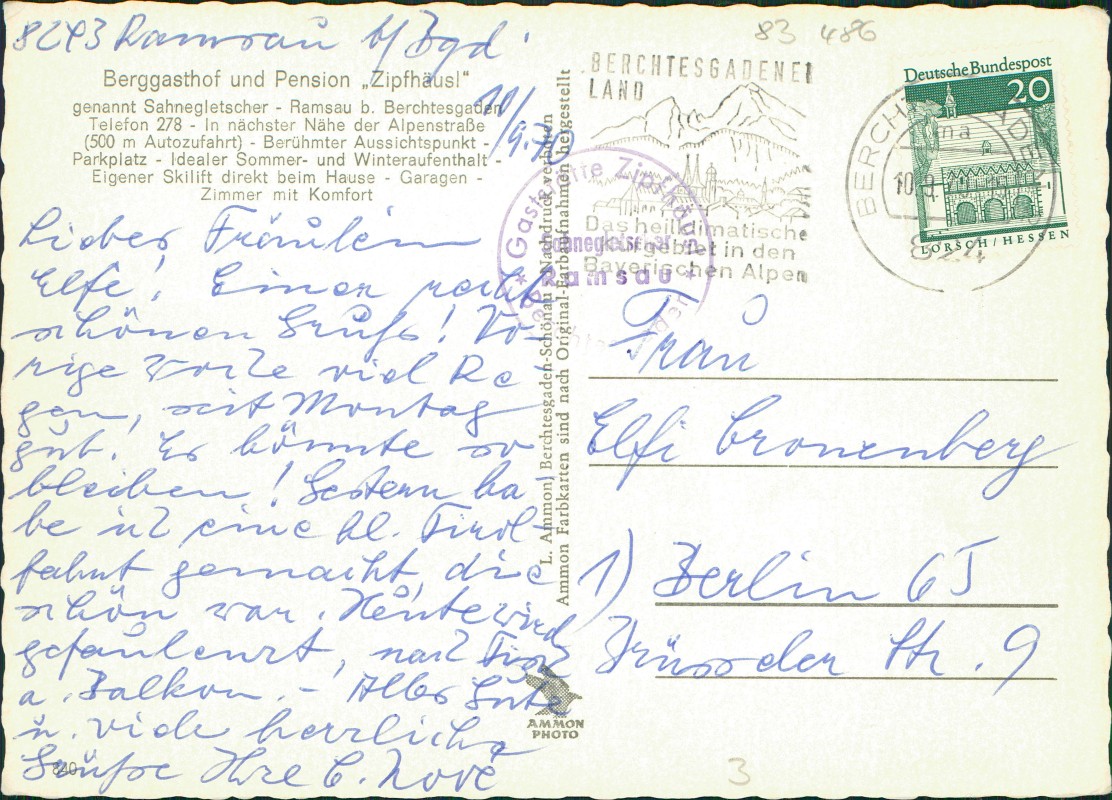 83 486
8243 Ramsau b/Bgd.
10/9.70
Berggasthof und Pension „Zipfhäusl“
genannt Sahnegletscher - Ramsau b. Berchtesgaden
Telefon 278 - In nächster Nähe der Alpenstraße
(500 m Autozufahrt) - Berühmter Aussichtspunkt -
Parkplatz - Idealer Sommer- und Winteraufenthalt -
Eigener Skilift direkt beim Hause - Garagen -
Zimmer mit Komfort
Liebes Fräulein
Elfe! Einen recht
schönen Gruß! Vo-
rige Woche viel Re-
gen, seit Montag
gut. Es könnte so
bleiben! Gestern ha-
be ich eine kl. Tirol-
fahrt gemacht, die
schön war. Heute wird
gefaulenzt, nach Tisch
a. Balkon. - Alles Gute
u. viele herzliche
Grüße Ihre C. Nové
840
L. Ammon, Berchtesgaden-Schönau Nachdruck verboten
Ammon Farbkarten sind nach Original-Farbaufnahmen hergestellt
AMMON
PHOTO
BERCHTESGADENER
LAND
Das heilklimatische
Kurgebiet in den
Bayerischen Alpen
Gaststätte Zipfhäusl
Sahnegletscher
Ramsau
BERCHTESGADEN
10.9.
824
Deutsche Bundespost
20
LORSCH / HESSEN
Frau
Elfi Cronenberg
1) Berlin 65
Brüsseler Str. 9
3